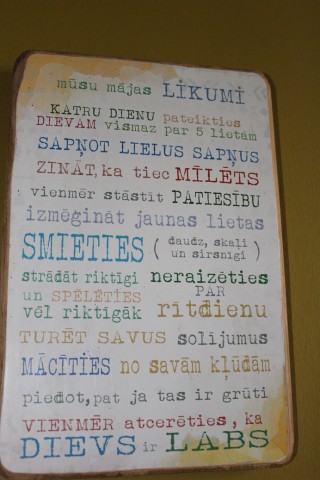 mūsu mājas LIKUMI
KATRU DIENU pateikties
DIEVAM vismaz par 5 lietām
SAPŅOT LIELUS SAPŅUS
ZINĀT, ka tiec MĪLĒTS
vienmēr stāstīt PATIESĪBU
izmēģināt jaunas lietas
SMIETIES ( daudz, skaļi un sirsnīgi )
strādāt riktīgi
un SPĒLĒTIES
vēl riktīgāk
neraizēties
PAR
rītdienu
TURĒT SAVUS solījumus
MĀCĪTIES no savām kļūdām
piedot, pat ja tas ir grūti
VIENMĒR atcerēties, ka
DIEVS ir LABS